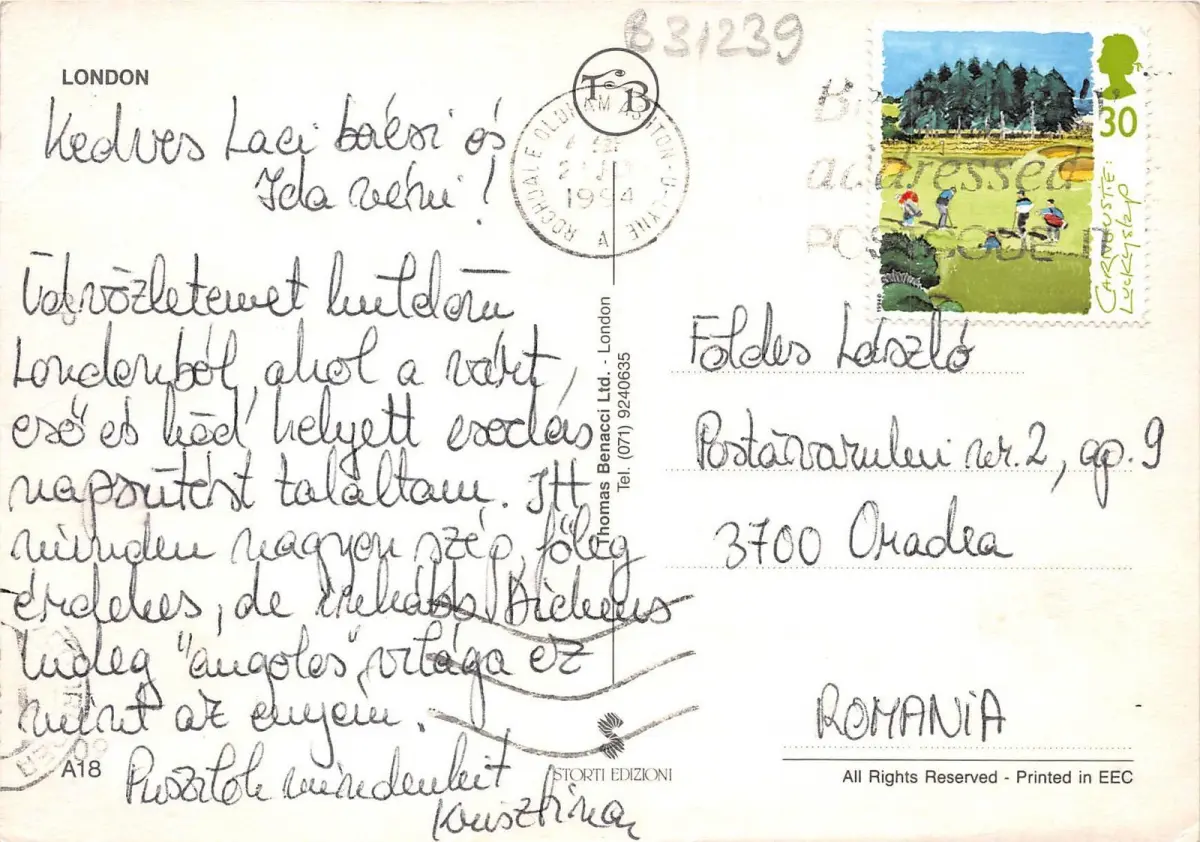 B31239
LONDON
T&B
Kedves Laci bácsi és
Ida néni!
Üdvözletemet küldöm
Londonból, ahol a várt,
eső és köd helyett csodás
napsütést találtam. Itt
minden nagyon szép, főleg
érdekes, de inkább Dickens
hideg "angolos" világa ez
mint az enyém.
Puszilok mindenkit
Krisztina
ROCHDALE OLDHAM ASHTON-U-LYNE
1994
A
addressed
POSTCODE IT
30
CARNOUSTIE:
Luckyslap
Thomas Benacci Ltd. - London
Tel. (071) 9240635
Földes László
Postăvarului nr. 2, ap. 9
3700 Oradea
ROMANIA
A18
STORTI EDIZIONI
All Rights Reserved - Printed in EEC